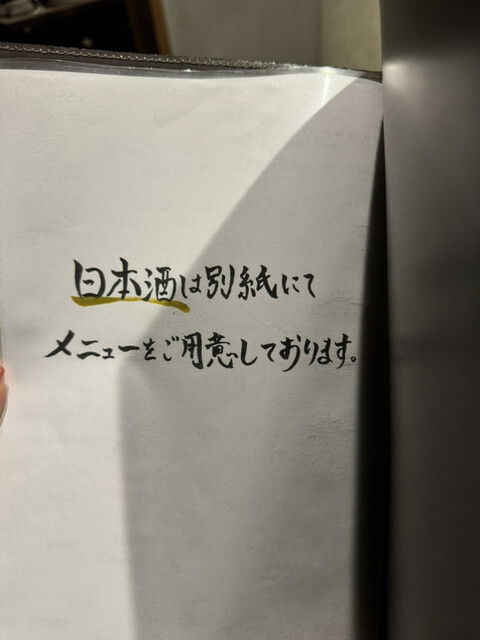 日本酒は別紙にて
メニューをご用意しております。